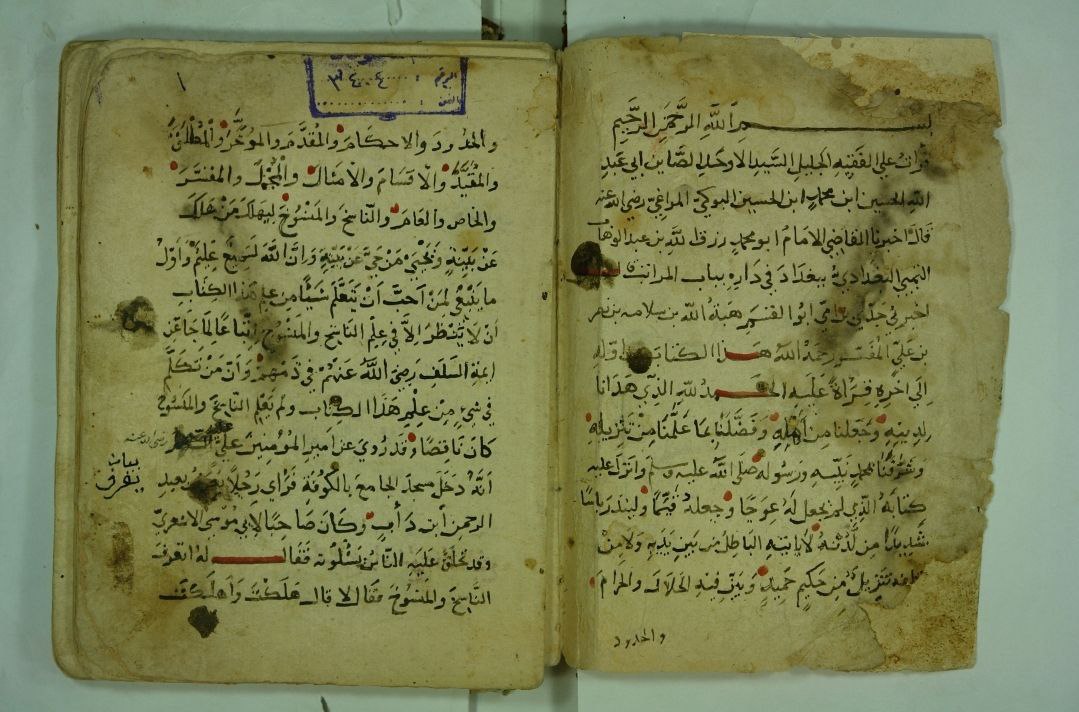 بســـم الله الرحمن الرحيم
قرأت علي الفقيه الجليل السيد الاوحد الصاين ابي عبد
الله الحسين ابن محمد ابن الحسين المراغي رضي الله عنه
قال اخبرنا القاضي الامام ابو محمد رزق الله بن عبد الوهاب
التميمي البغدادي ببغداد في داره بباب المراتب
اخبرني جدي من امي ابو القسم هبة الله بن سلامه بن نصر
بن علي المفسر رحمه الله هــذا الكتاب من اوله
الي اخره قراة عليه الحـــمد لله الذي هدانا
لدينه وجعلنا من اهله وفضلنا بما علمنا من تنزيله
وشرفنا بمحمد نبيه ورسوله صلى الله عليه وسلم وانزل عليه
كتابه الذي لم يجعل له عوجا وجعله قيما ولينذر باسا
شديدا من لدنه لا ياتيه الباطل من بين يديه ولا من
خلفه تنزيل من حكيم حميد وبين فيه الحلال والحرام
والحدود
١
الرقم : ٣٤٠٤
الفن :
والحدود والاحكام والمقدم والموخر والمطلق
والمقيد والاقسام والامثال والمجمل والمفسر
والخاص والعام والناسخ والمنسوخ ليهلك من هلك
عن بينة ويحيي من حي عن بينة وان الله لسميع عليم واول
ما ينبغي لمن احب ان يتعلم شيئا من علم هذا الكتاب
ان لا ينظر الا في علم الناسخ والمنسوخ اتباعا لما جا عن
ايمة السلف رضي الله عنهم في ذمهم وان من تكلم
في شيء من علم هذا الكتاب ولم يعلم الناسخ والمنسوخ
كان ناقصا وقد روي عن امير المؤمنين علي رضي الله عنه
انه دخل مسجد الجامع بالكوفة فراي رجلا يعرف بعبد
الرحمن ابن دأب وكان صاحبا لابي موسي الاشعري
وقد تحلق عليه الناس يسئلونه فقال له اتعرف
الناسخ والمنسوخ فقال لا قال هلكت واهلكت